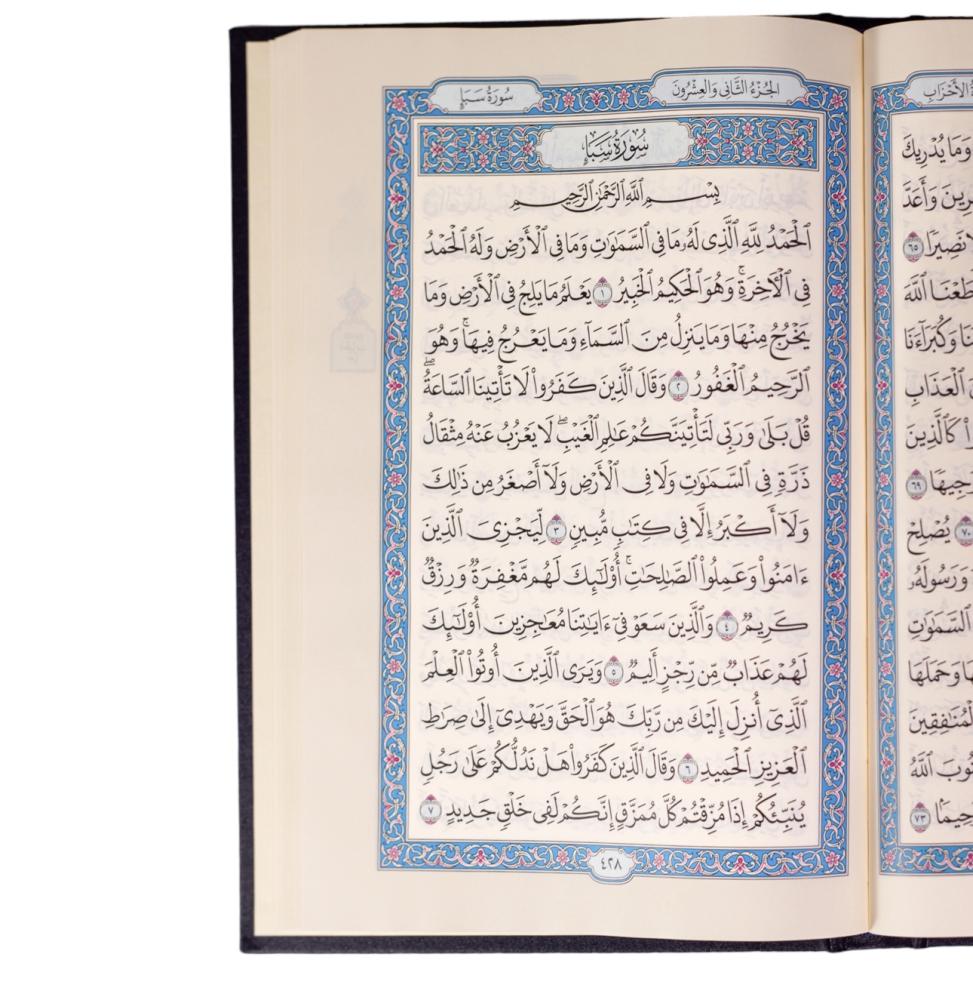 سُورَةُ سَبَإٍ
الجُزْءُ الثَّانِي وَالعِشْرُونَ
سُورَةُ سَبَإٍ
بِسْمِ ٱللَّهِ ٱلرَّحْمَٰنِ ٱلرَّحِيمِ
ٱلْحَمْدُ لِلَّهِ ٱلَّذِى لَهُۥ مَا فِى ٱلسَّمَٰوَٰتِ وَمَا فِى ٱلْأَرْضِ وَلَهُ ٱلْحَمْدُ
فِى ٱلْأَخِرَةِۚ وَهُوَ ٱلْحَكِيمُ ٱلْخَبِيرُ ١ يَعْلَمُ مَا يَلِجُ فِى ٱلْأَرْضِ وَمَا
يَخْرُجُ مِنْهَا وَمَا يَنزِلُ مِنَ ٱلسَّمَآءِ وَمَا يَعْرُجُ فِيهَاۚ وَهُوَ
ٱلرَّحِيمُ ٱلْغَفُورُ ٢ وَقَالَ ٱلَّذِينَ كَفَرُوا۟ لَا تَأْتِينَا ٱلسَّاعَةُۖ
قُلْ بَلَىٰ وَرَبِّى لَتَأْتِيَنَّكُمْ عَٰلِمِ ٱلْغَيْبِۖ لَا يَعْزُبُ عَنْهُ مِثْقَالُ
ذَرَّةٍ فِى ٱلسَّمَٰوَٰتِ وَلَا فِى ٱلْأَرْضِ وَلَآ أَصْغَرُ مِن ذَٰلِكَ
وَلَآ أَكْبَرُ إِلَّا فِى كِتَٰبٍ مُّبِينٍ ٣ لِّيَجْزِىَ ٱلَّذِينَ
ءَامَنُوا۟ وَعَمِلُوا۟ ٱلصَّٰلِحَٰتِۚ أُو۟لَٰٓئِكَ لَهُم مَّغْفِرَةٌ وَرِزْقٌ
كَرِيمٌ ٤ وَٱلَّذِينَ سَعَوْ فِىٓ ءَايَٰتِنَا مُعَٰجِزِينَ أُو۟لَٰٓئِكَ
لَهُمْ عَذَابٌ مِّن رِّجْزٍ أَلِيمٌ ٥ وَيَرَى ٱلَّذِينَ أُوتُوا۟ ٱلْعِلْمَ
ٱلَّذِىٓ أُنزِلَ إِلَيْكَ مِن رَّبِّكَ هُوَ ٱلْحَقَّ وَيَهْدِىٓ إِلَىٰ صِرَٰطِ
ٱلْعَزِيزِ ٱلْحَمِيدِ ٦ وَقَالَ ٱلَّذِينَ كَفَرُوا۟ هَلْ نَدُلُّكُمْ عَلَىٰ رَجُلٍ
يُنَبِّئُكُمْ إِذَا مُزِّقْتُمْ كُلَّ مُمَزَّقٍ إِنَّكُمْ لَفِى خَلْقٍ جَدِيدٍ ٧
٤٢٨
الأَحْزَابِ
وَمَا يُدْرِيكَ
وَأَعَدَّ
نَصِيرًا ٦٥
ٱللَّهَ
وَكُبَرَآءَنَا
ٱلْعَذَابِ
كَٱلَّذِينَ
٦٩
٧٠ يُصْلِحْ
وَرَسُولَهُۥ
ٱلسَّمَٰوَٰتِ
وَحَمَلَهَا
ٱللَّهُ
٧٣